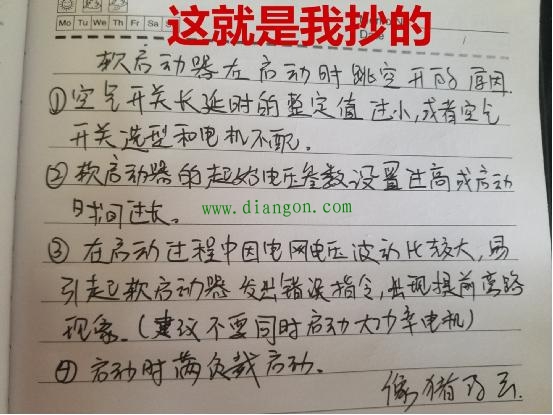 这就是我抄的
Mo Tu We Th Fr Sa
软启动器在启动时跳空开的原因.
①空气开关长延时的整定值过小,或者空气
开关选型和电机不配。
②软启动器的起始电压参数设置过高或启动
时间过长。
www.diangon.com
③在启动过程中因电网电压波动比较大,易
引起软启动器发出错误指令,出现提前旁路
现象。(建议不要同时启动大功率电机)
④启动时满负载启动。